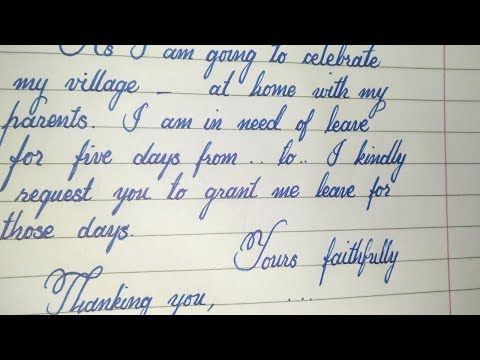 As I am going to celebrate
my village – at home with my
parents. I am in need of leave
for five days from .. to.. I kindly
request you to grant me leave for
those days.
Yours faithfully
Thanking you, ...